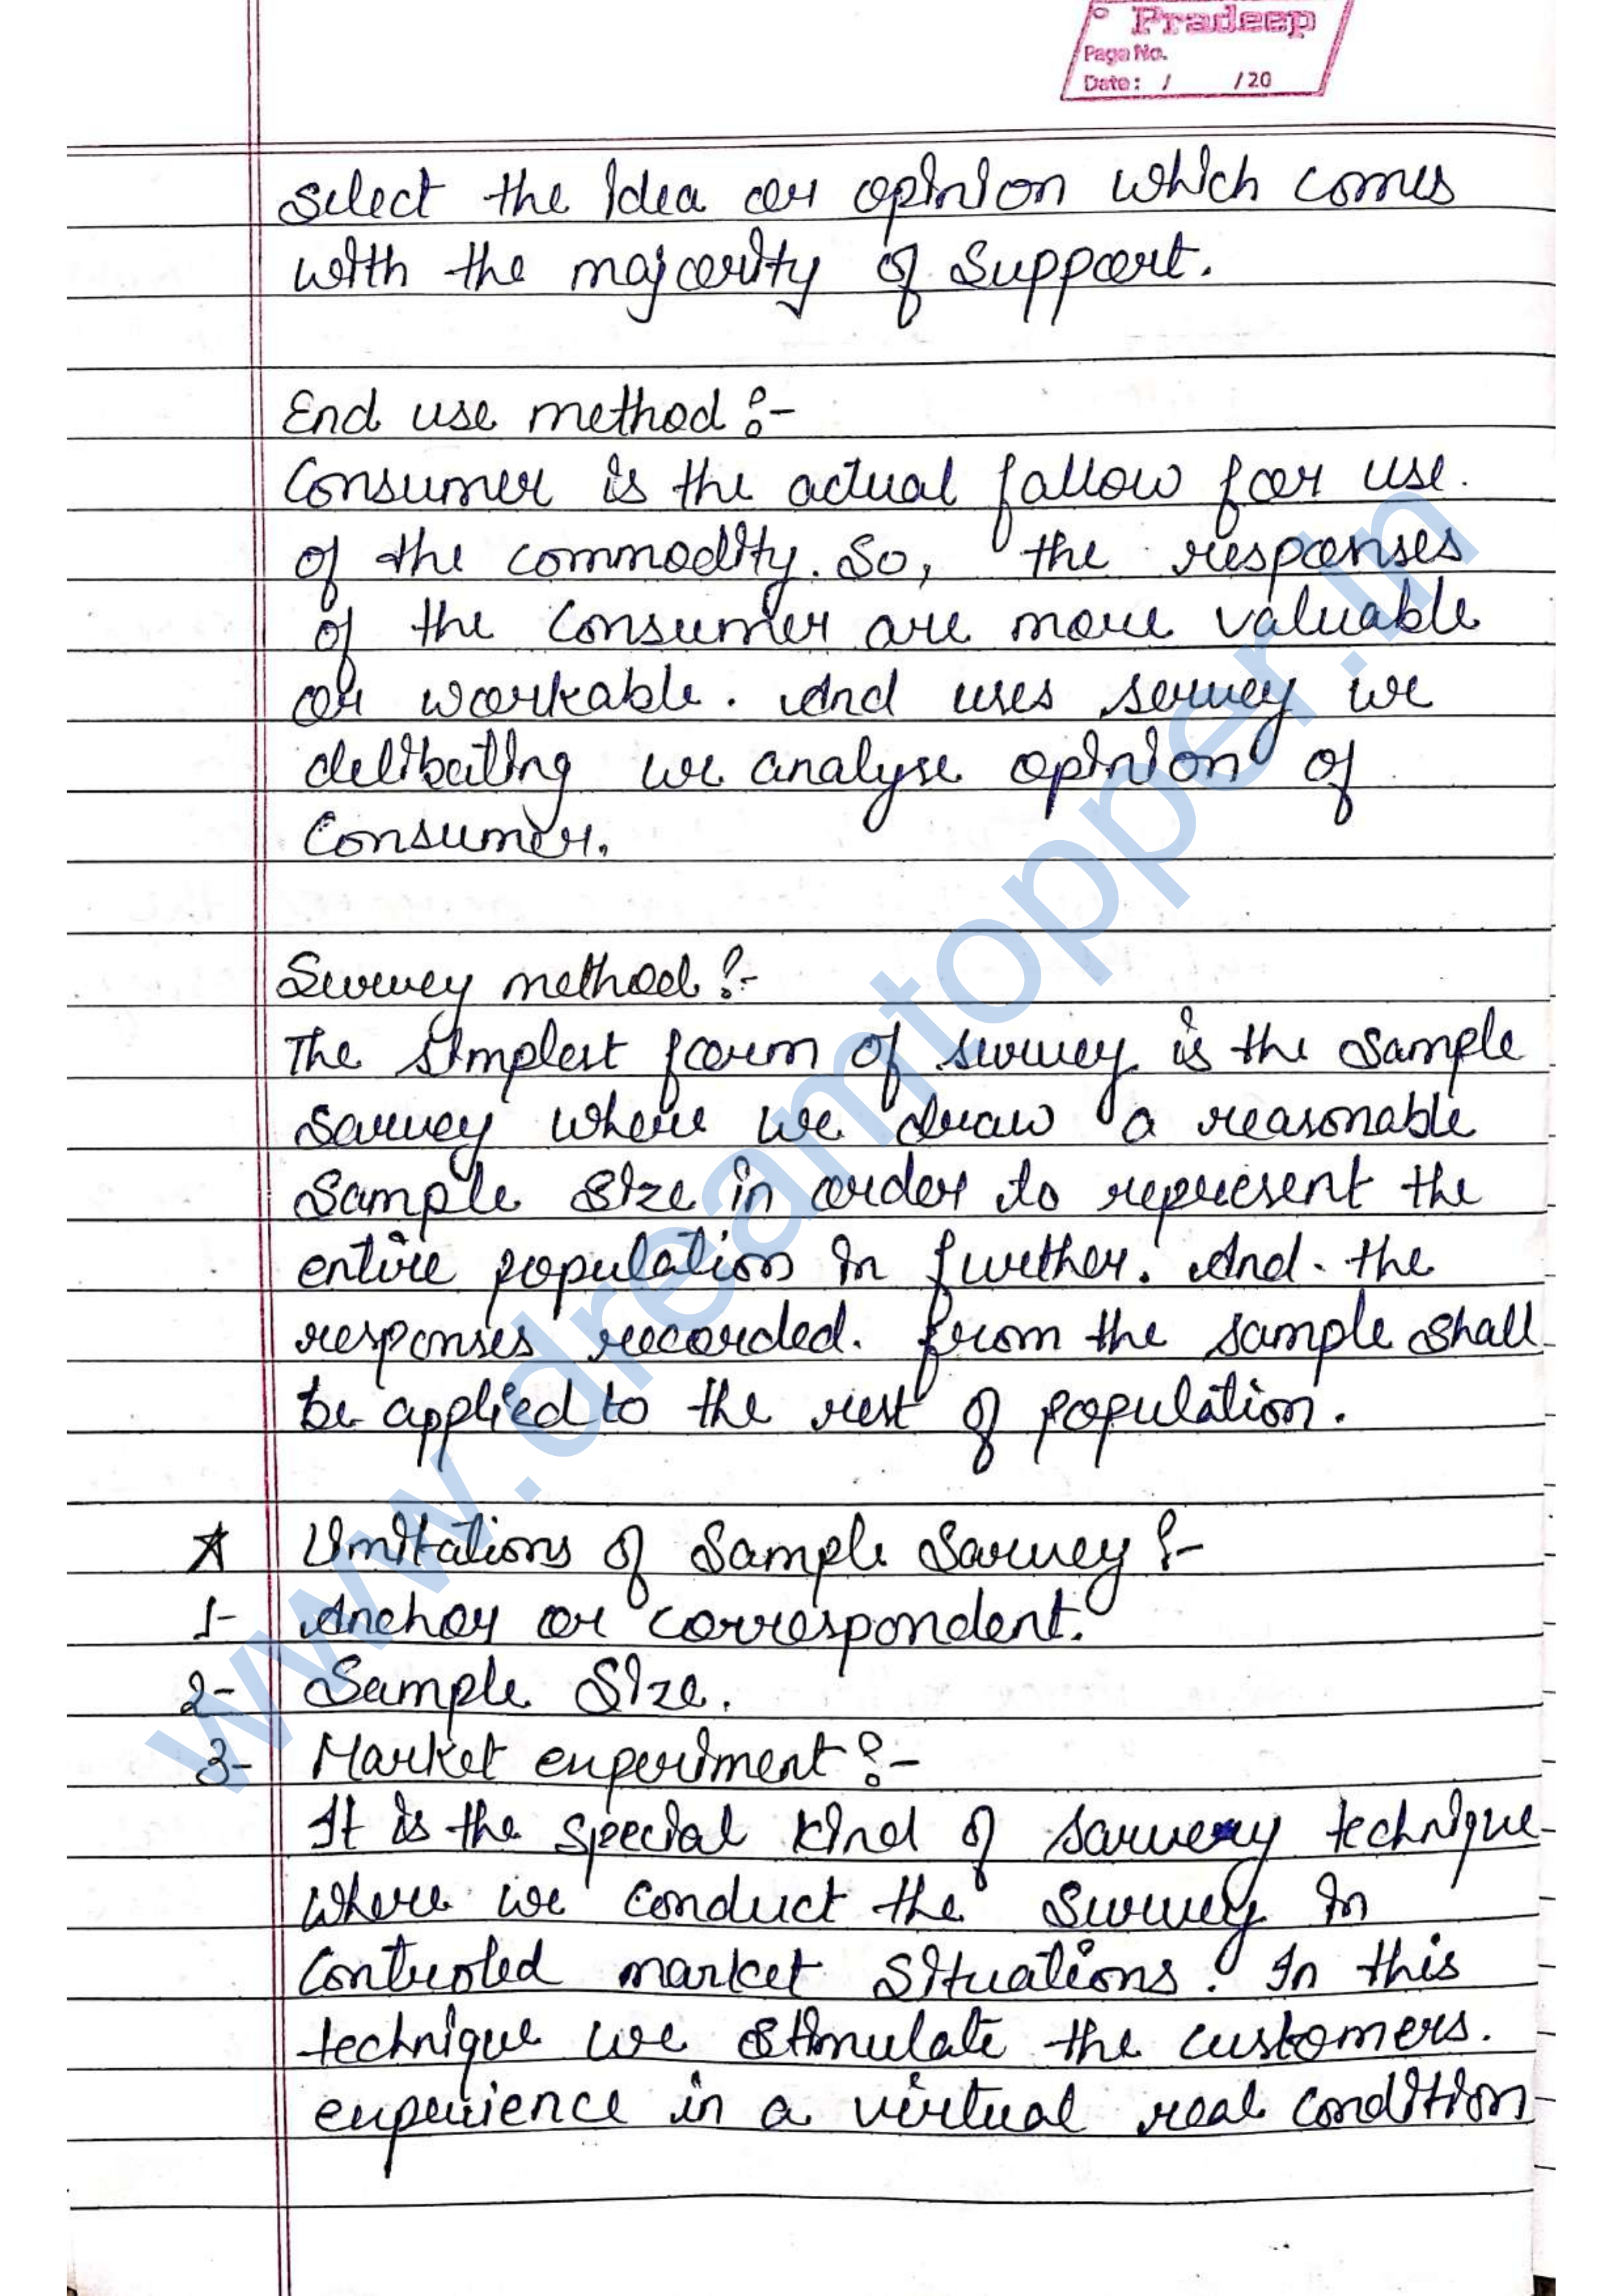 Pradeep
Page No.
Date: / /20
Select the idea or opinion which comes
with the majority of support.
End use method :-
Consumer is the actual fallow for use.
of the commodity. So, the responses
of the consumer are more valuable
or workable. And uses servey we
delibating we analyse opinion of
Consumer.
Survey method :-
The simplest form of survey is the sample
sarvey where we draw a reasonable
sample size in order to represent the
entire population in further. And. the
responses recorded. from the sample shall
be applied to the rest of population.
★ Limitations of Sample Sarvey :-
1- Anchor or correspondent.
2- Sample Size.
3- Market experiment :-
It is the special kind of sarvey technique
where we conduct the survey in
Controled market situations. In this
technique we stimulate the customers.
experience in a virtual real condition
www.dreamtopper.in